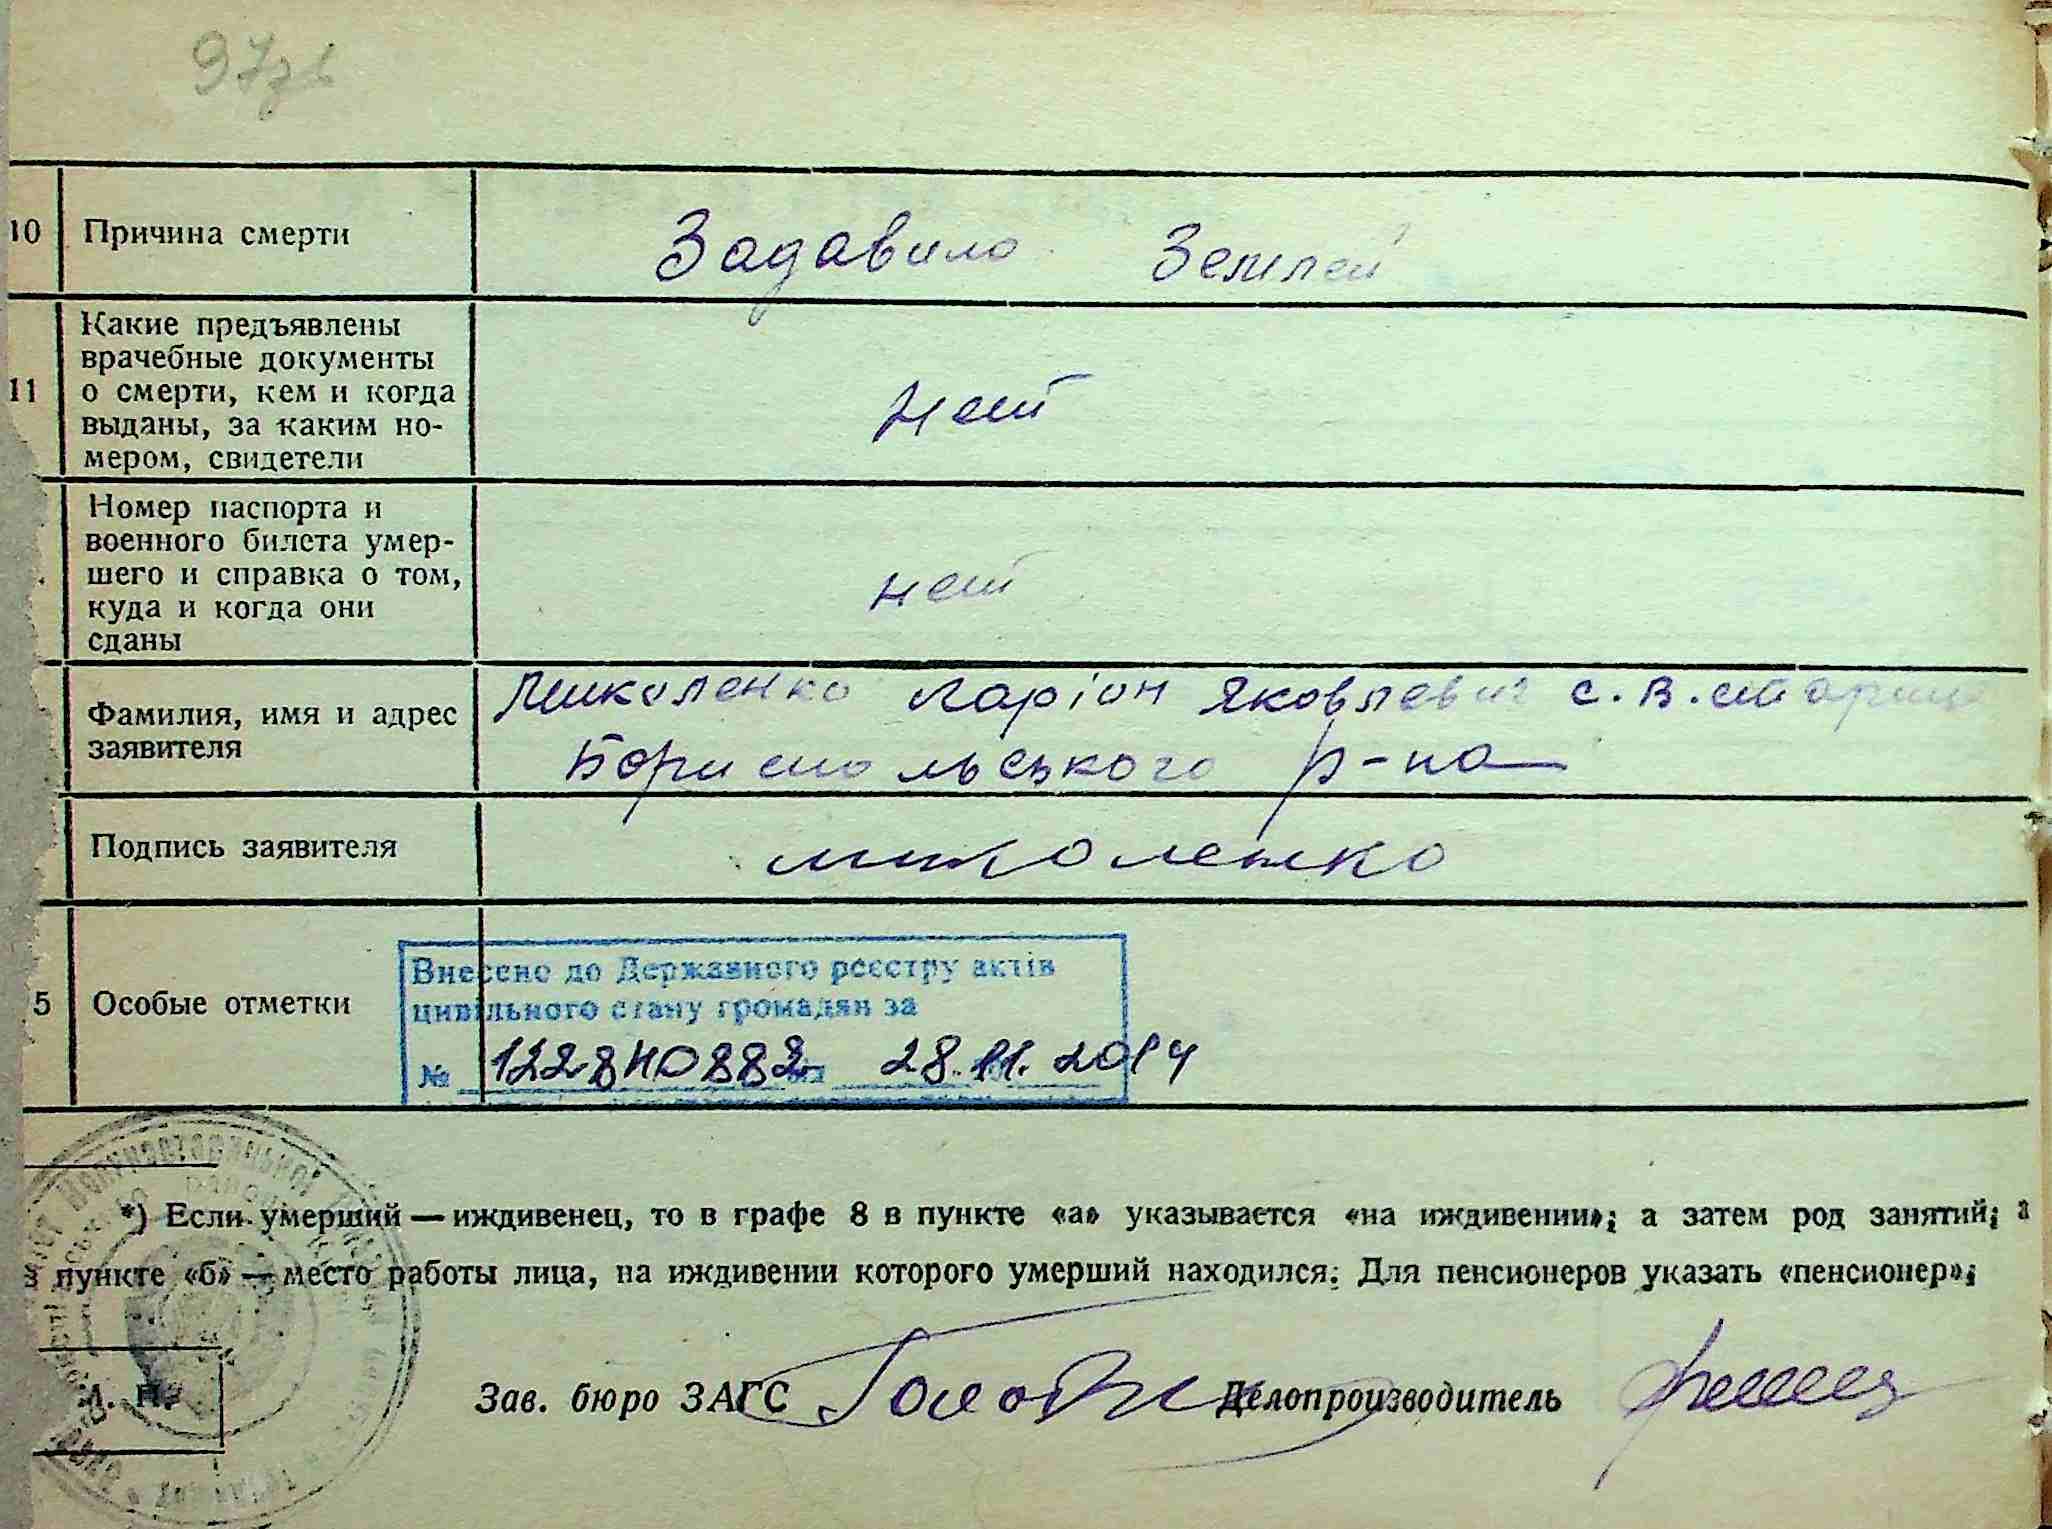 97зв
10 Причина смерти Задавило Землей
11 Какие предъявлены
врачебные документы
о смерти, кем и когда
выданы, за каким но-
мером, свидетели
нет
Номер паспорта и
военного билета умер-
шего и справка о том,
куда и когда они
сданы
нет
Фамилия, имя и адрес
заявителя
Миколенко Ларіон Яковлевич с. В. Стариця
Бориспольського р-на
Подпись заявителя Миколенко
5 Особые отметки
Внесено до Державного реєстру актів
цивільного стану громадян за
№ 122840882 28.11.2014
*) Если умерший — иждивенец, то в графе 8 в пункте «а» указывается «на иждивении»; а затем род занятий; а
в пункте «б» — место работы лица, на иждивении которого умерший находился. Для пенсионеров указать «пенсионер».
М. П.
Зав. бюро ЗАГС Делопроизводитель